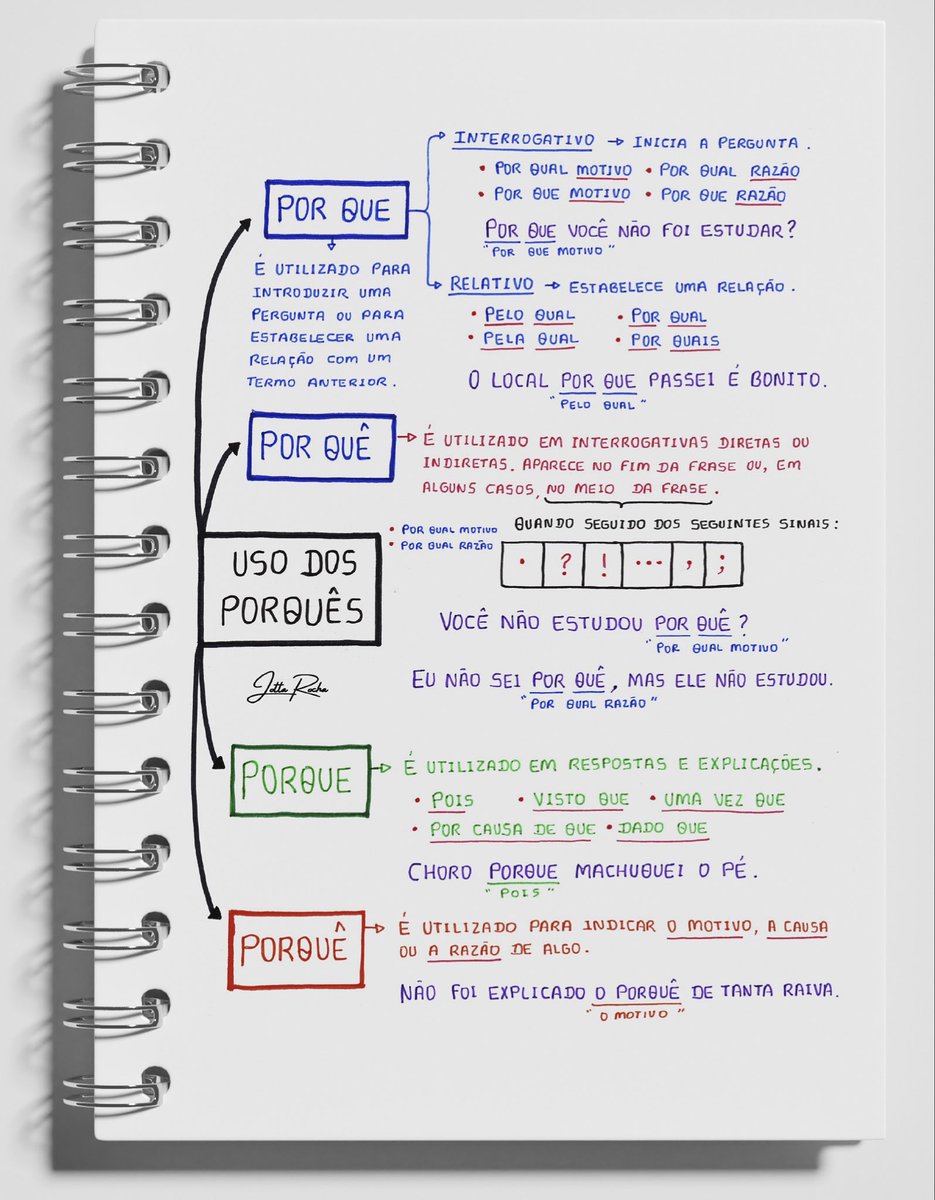 INTERROGATIVO → INICIA A PERGUNTA.
• POR QUAL MOTIVO • POR QUAL RAZÃO
• POR QUE MOTIVO • POR QUE RAZÃO
POR QUE
POR QUE VOCÊ NÃO FOI ESTUDAR?
"POR QUE MOTIVO"
É UTILIZADO PARA
INTRODUZIR UMA
PERGUNTA OU PARA
ESTABELECER UMA
RELAÇÃO COM UM
TERMO ANTERIOR.
RELATIVO → ESTABELECE UMA RELAÇÃO.
• PELO QUAL • POR QUAL
• PELA QUAL • POR QUAIS
O LOCAL POR QUE PASSEI É BONITO.
"PELO QUAL"
POR QUÊ
É UTILIZADO EM INTERROGATIVAS DIRETAS OU
INDIRETAS. APARECE NO FIM DA FRASE OU, EM
ALGUNS CASOS, NO MEIO DA FRASE.
QUANDO SEGUIDO DOS SEGUINTES SINAIS:
• POR QUAL MOTIVO
• POR QUAL RAZÃO
. ? ! ... , ;
USO DOS
PORQUÊS
VOCÊ NÃO ESTUDOU POR QUÊ?
"POR QUAL MOTIVO"
EU NÃO SEI POR QUÊ, MAS ELE NÃO ESTUDOU.
"POR QUAL RAZÃO"
Jotta Rocha
PORQUE
É UTILIZADO EM RESPOSTAS E EXPLICAÇÕES.
• POIS • VISTO QUE • UMA VEZ QUE
• POR CAUSA DE QUE • DADO QUE
CHORO PORQUE MACHUQUEI O PÉ.
"POIS"
PORQUÊ
É UTILIZADO PARA INDICAR O MOTIVO, A CAUSA
OU A RAZÃO DE ALGO.
NÃO FOI EXPLICADO O PORQUÊ DE TANTA RAIVA.
"O MOTIVO"